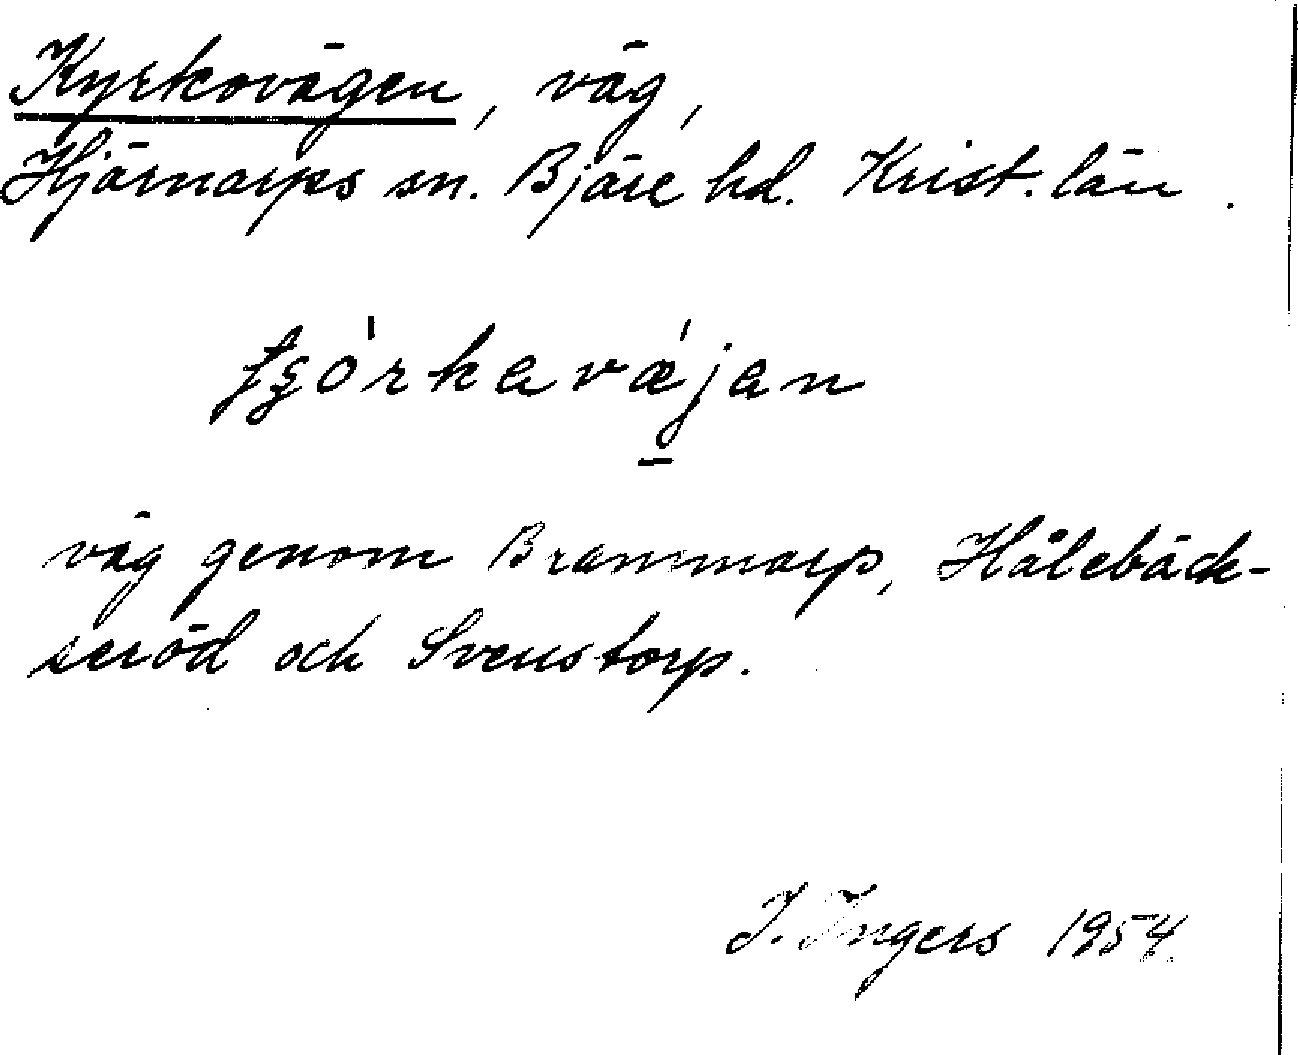 Kyrkovägen, väg,
Hjärnarps sn. Bjäre hd. Krist. län.
tʂórkavǽjan
väg genom Brammarp, Hålebäck-
seröd och Svenstorp.
I. Ingers 1954.